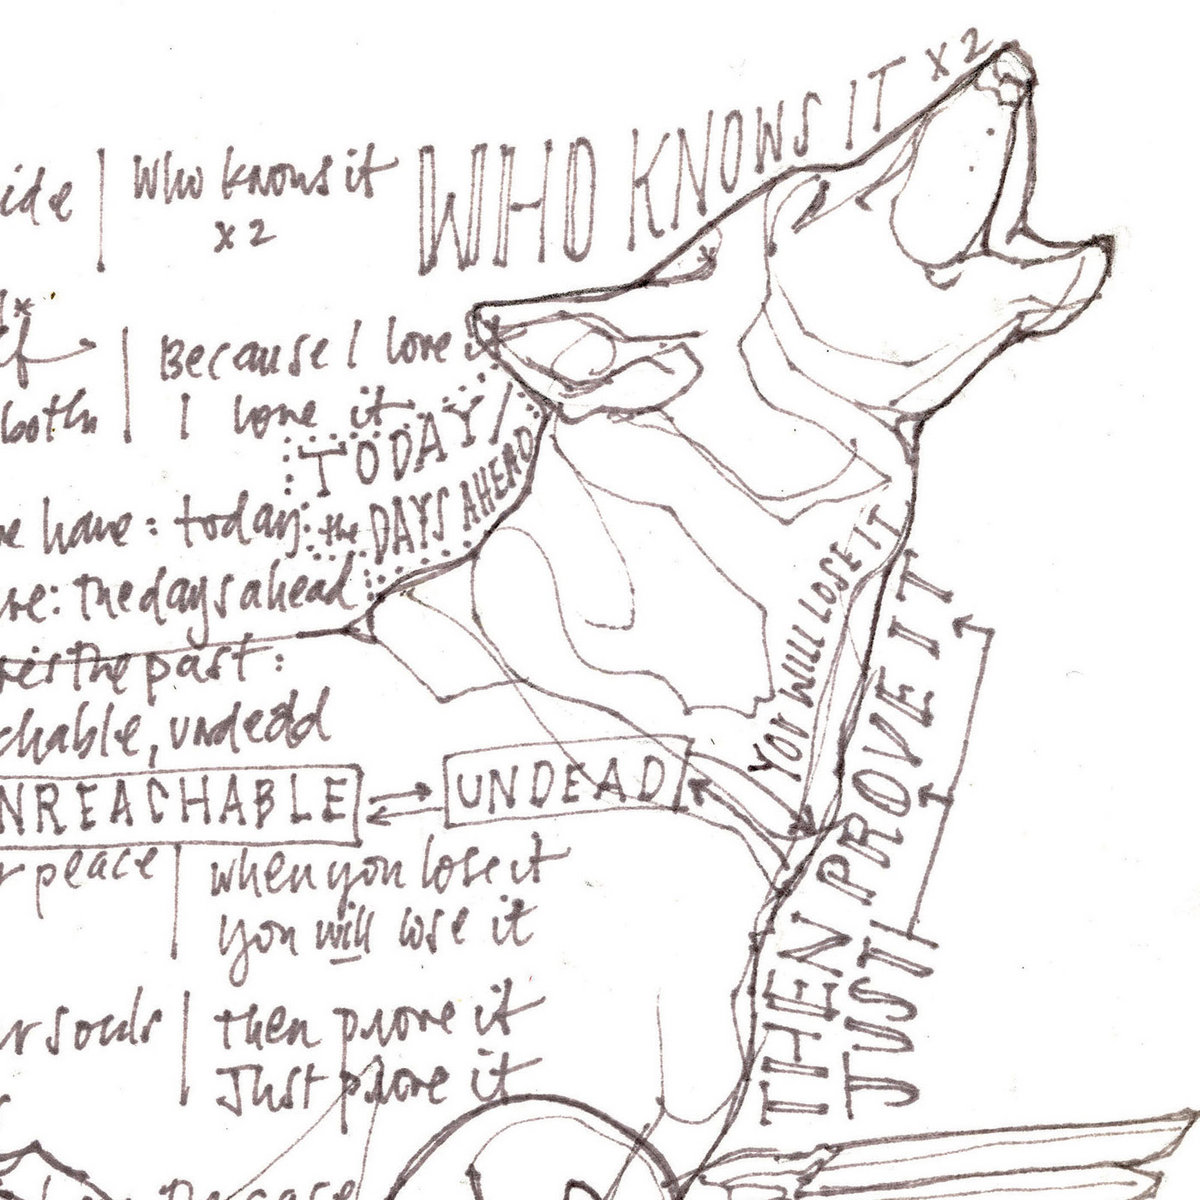 WHO KNOWS IT x2
ide | Who knows it
x2
Because I love it
both | I love it
TODAY/
the DAYS AHEAD
we have: today:
are: the days ahead
the past:
chable, undead
NREACHABLE UNDEAD
YOU WILL LOSE IT
r peace | when you lose it
You will lose it
THEN PROVE IT
JUST
ur souls | then prove it
Just prove it